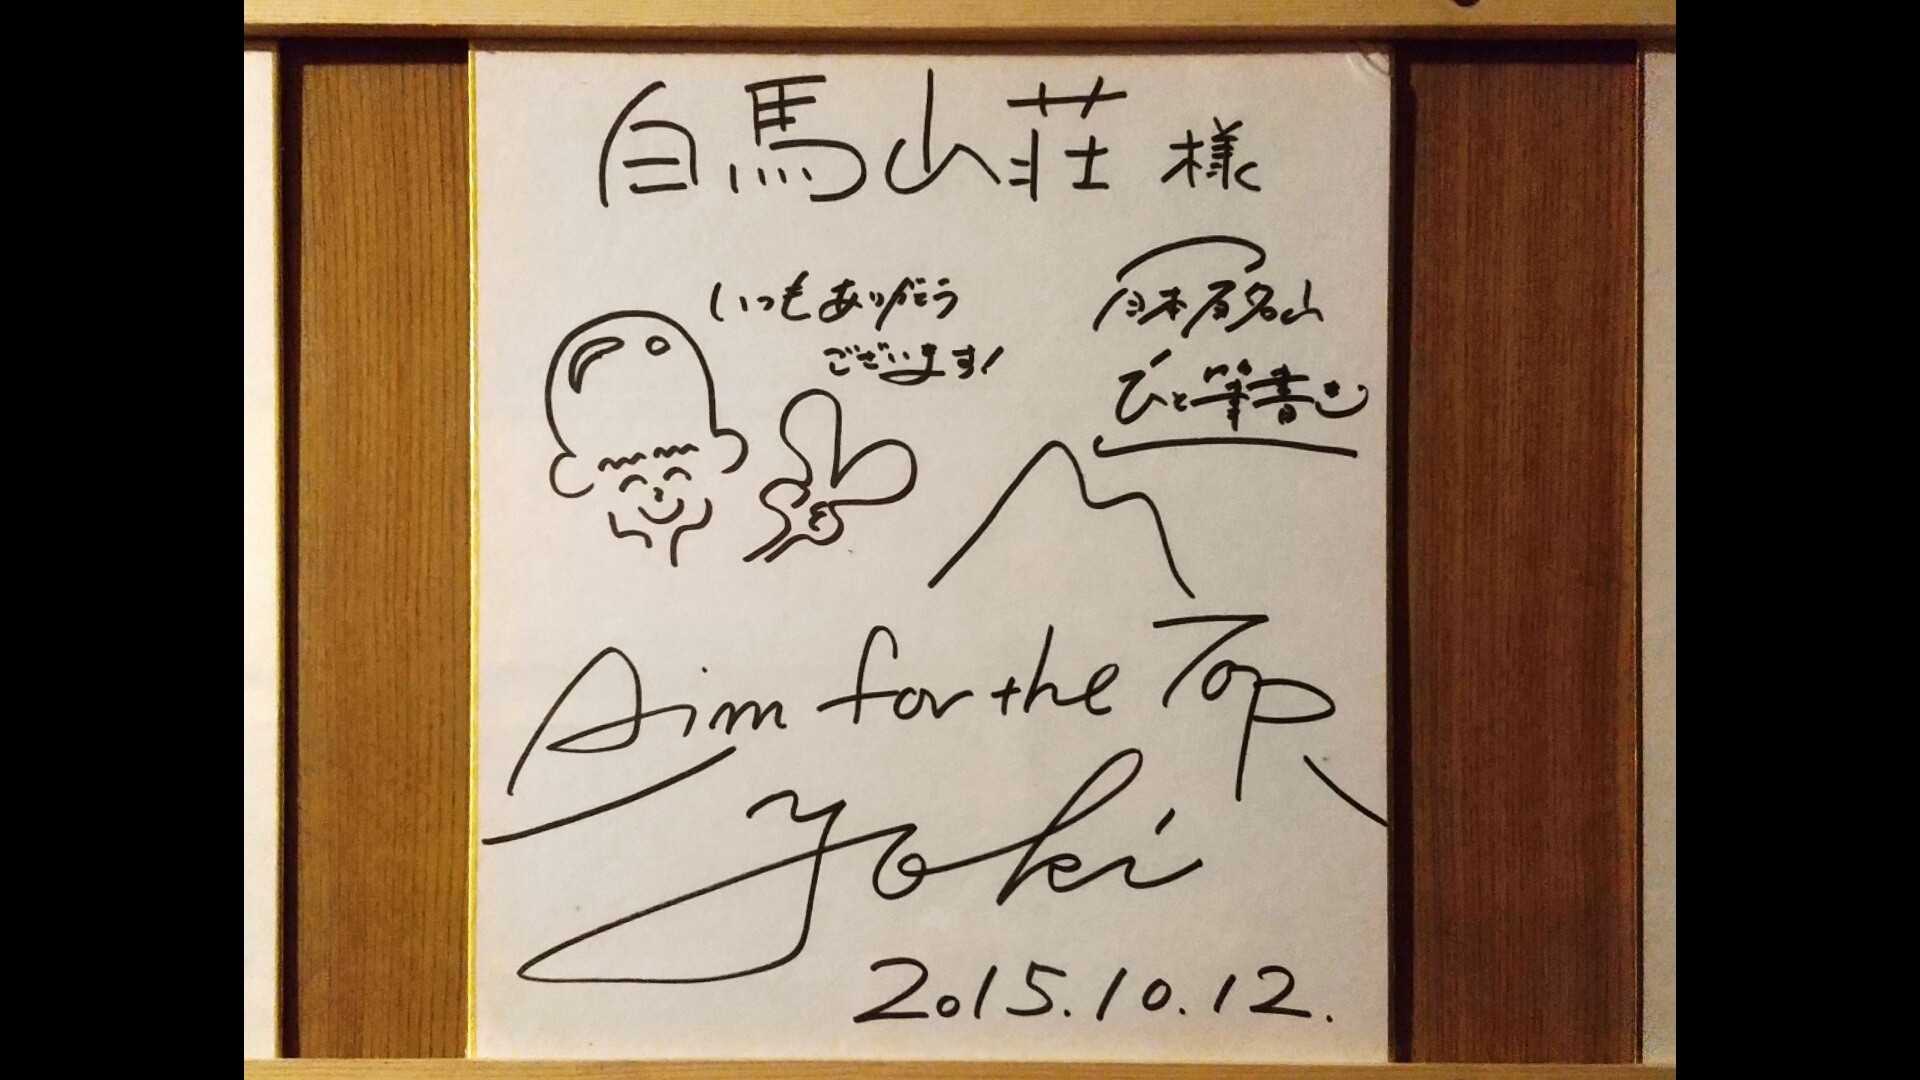 白馬山荘 様
いつもありがとう
ございます!
日本百名山
ひと筆書き
Aim for the Top
Yoki
2015.10.12.